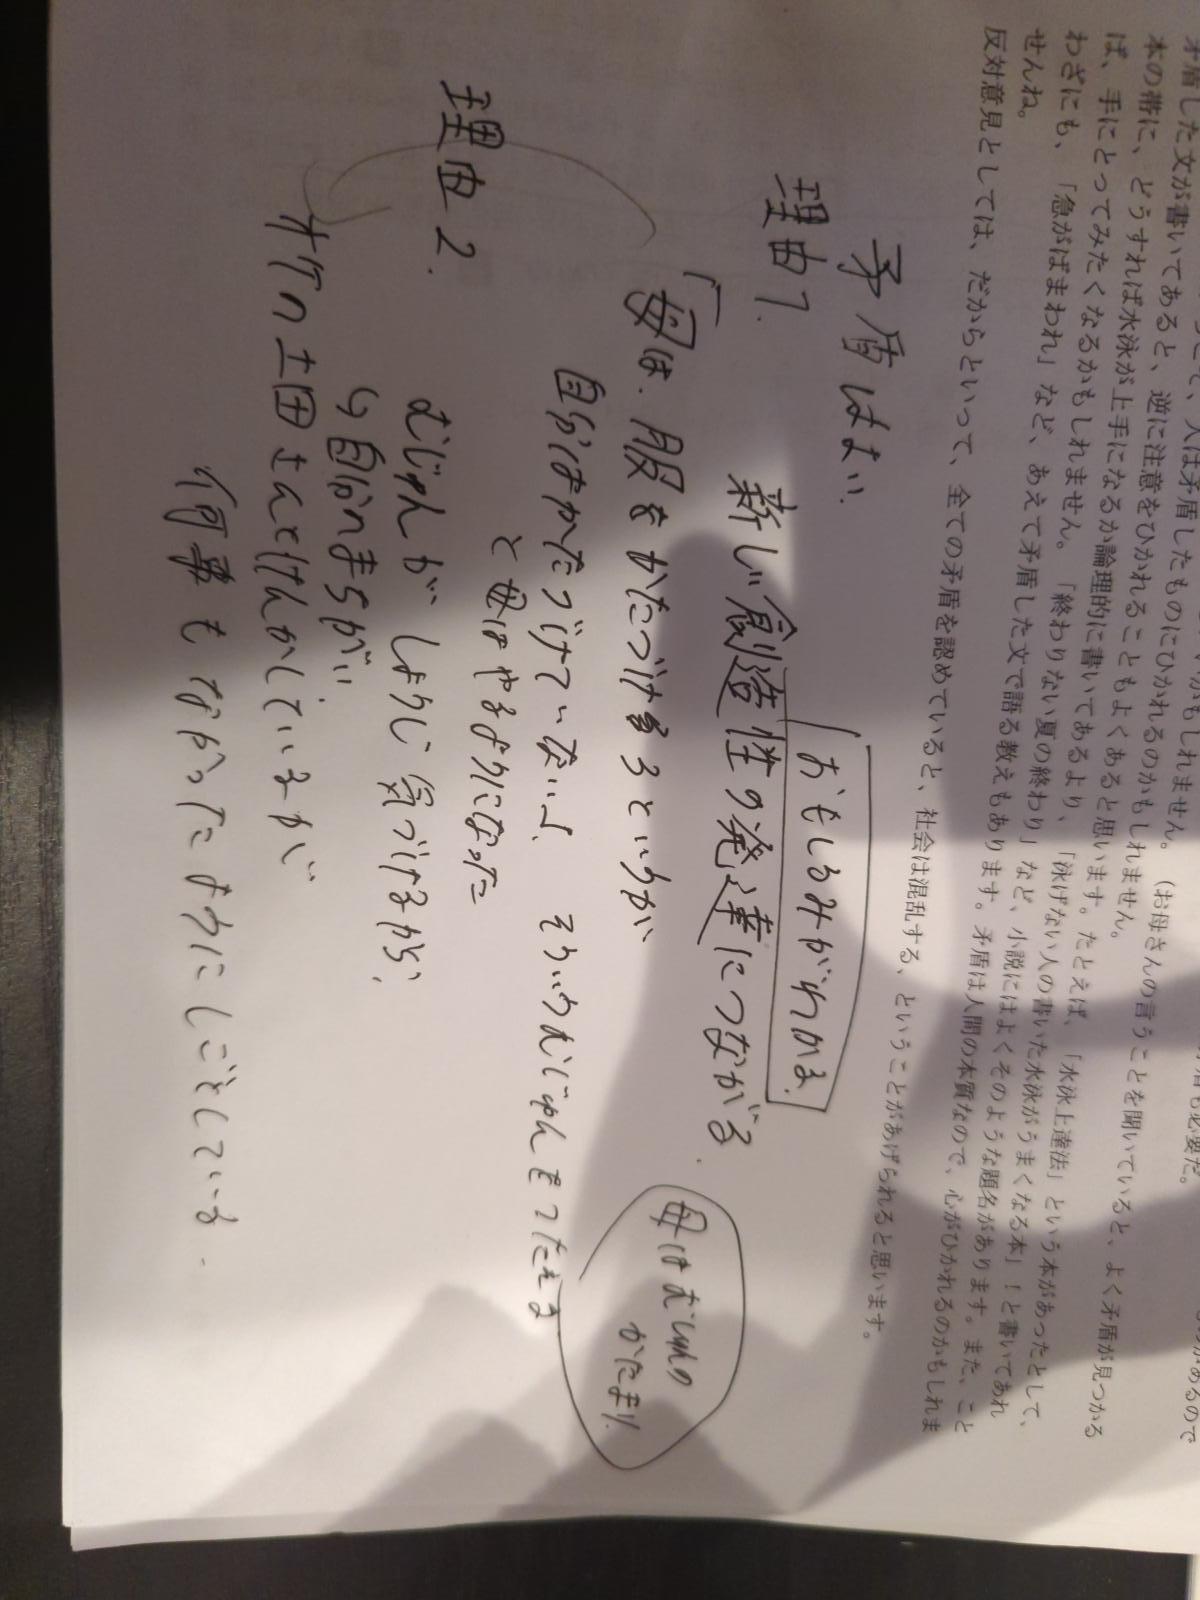 矛盾した文が書いてあると、逆に注意をひかれることもよくあると思います。たとえば、「水泳上達法」という本があったとして、
本の帯に、どうすれば水泳が上手になるか論理的に書いてあるより、「泳げない人の書いた水泳がうまくなる本」！と書いてあれ
ば、手にとってみたくなるかもしれません。「終わりない夏の終わり」など、小説にはよくそのような題名があります。また、こと
わざにも、「急がばまわれ」など、あえて矛盾した文で語る教えもあります。矛盾は人間の本質なので、心がひかれるのかもしれま
せんね。
反対意見としては、だからといって、全ての矛盾を認めていると、社会は混乱する、ということがあげられると思います。
矛盾はよい.
おもしろみがわかる.
理由1.
新しい創造性の発達につながる.
「母は.服をかたづけろというが
自分はかたづけていないよ、そういうむじゅんをつたえる
と母はやるようになった
母はむじゅんの
かたまり.
理由2.
むじゅんが、しょうじ気づけるから、
自分のまちがい
土田さんとけんかしているが
何事もなかったようにしごとしている.